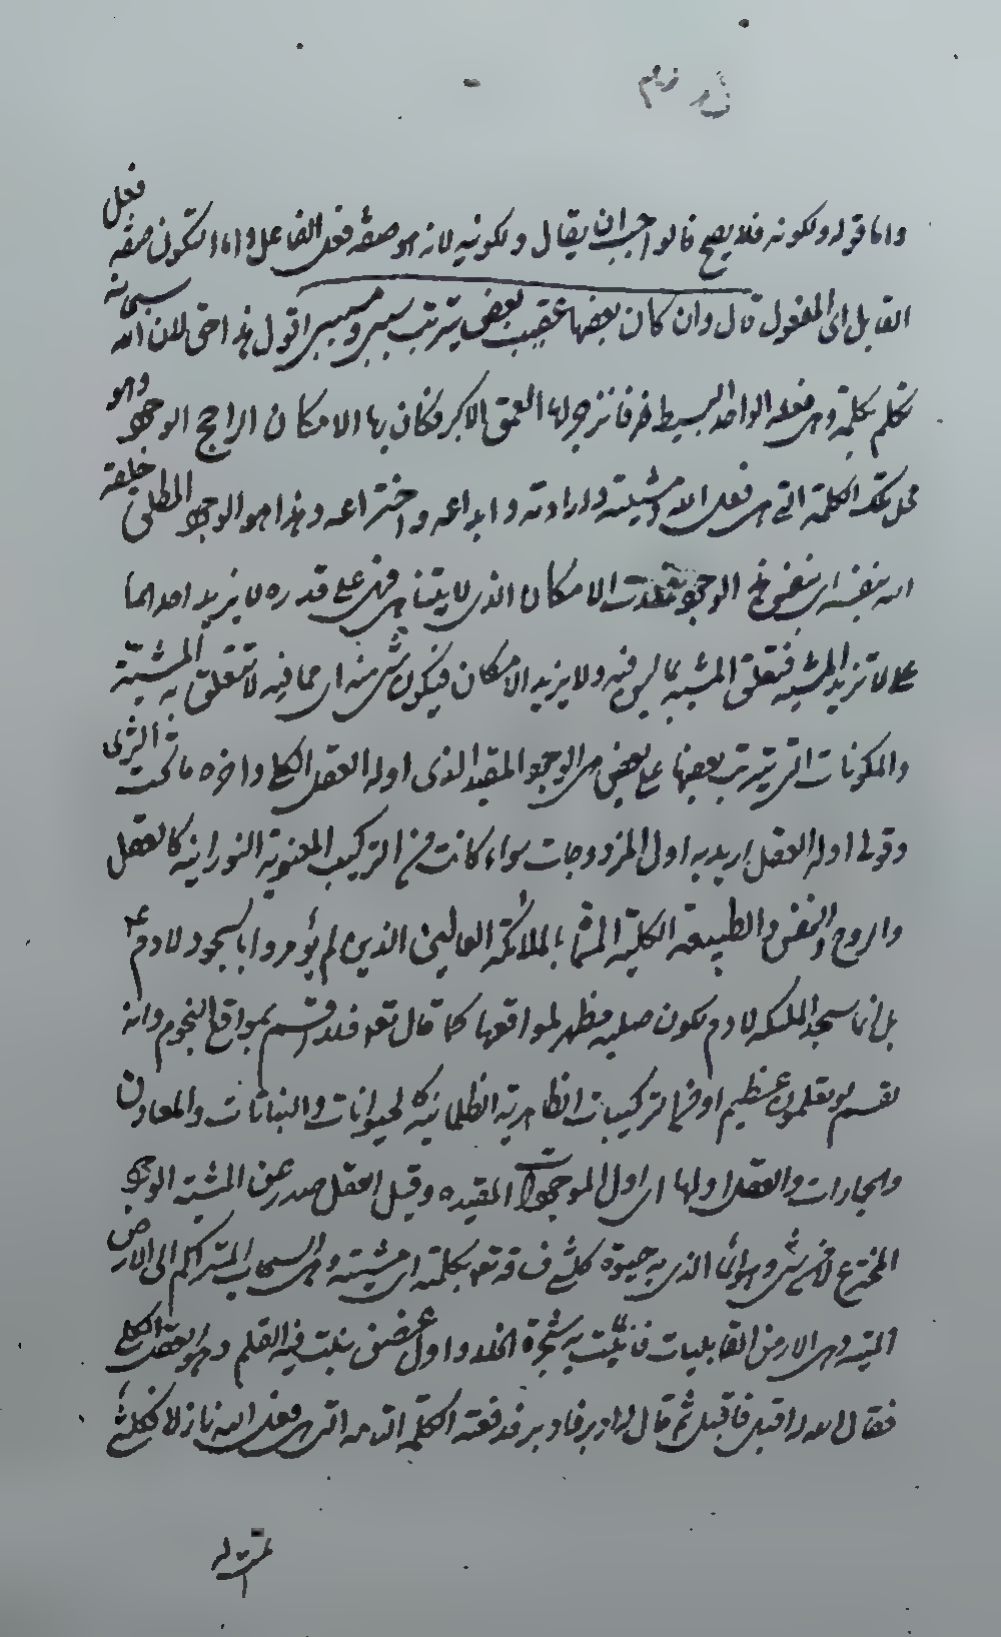 واما قوله ولكونه فلا يصح فالواجب ان يقال ولكونيه لانه هو صفة فعل الفاعل واما التكون صفة فعل
القابل اى المفعول قال وان كان بعضها عقيب بعض يترتب سببى ومسببى اقول هذا حق لان الله سبحانه
تكلم بكلمة وهى فعله الواحد البسيط فانزجر لها العمق الاكبر فكان بها الامكان الراجح الوجود وهو
محل تلك الكلمة التى هى فعل الله ومشيته وارادته وابداعه واختراعه وهذا هو الوجود المطلق خلقه
الله بنفسه اى بنفس هذا الوجود تعلقت الامكان الذى لا يتناهى فهى على قدره لا يزيد احدهما
على لا تزيد المشية فتعلق المشية بما ليس فيه ولا يزيد الامكان فيكون شئ منه اى مما فيه لا تتعلق به المشية
والمكونات التى يترتب بعضها على بعض هى الوجود المقيد الذى اوله العقل الكلى واخره ما تحت الثرى
وقولى اوله العقل اريد به اول المزدوجات سواء كانت من التركيب المعنوية النورانية كالعقل
والروح والنفس والطبيعة الكلية المسماة بالملائكة العالين الذين لم يؤمروا بالسجود لادم ع
بل انما سجد الملئكة لادم لكون صلبه مظهر لمواقعها كما قال تعه فلا اقسم بمواقع النجوم وانه
لقسم لو تعلمون عظيم او من التركيبات الظاهرية الظلمانية كالحيوانات والنباتات والمعادن
والجمادات والعقل اولها اى اول الموجودات المقيده وقبل العقل صدر عن المشية الوجود
المخترع لا من شئ وهو الماء الذى به حيوة كلشئ فساقه تعه بكلمته اى مشيته وهى السحاب المتراكم الى الارض
الميته وهى الارض القابليات فانبتت به شجرة الخلد واول غصن نبت فيه القلم وهو العقل الكلى
فقال الله له اقبل فاقبل ثم قال له ادبر فادبر فدفعته الكلمة التامه التى هى فعل الله نازلا فكلشئ